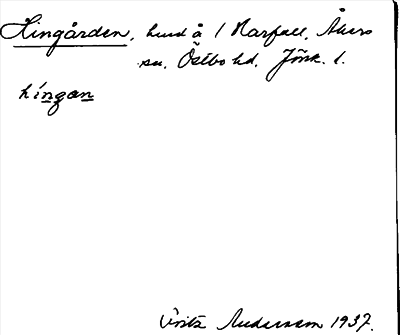 Hingården, lund å 1 Narfall, Åkers
sn, Östbo hd, Jönk. l.
híngan
Fritz Andersson 1937.